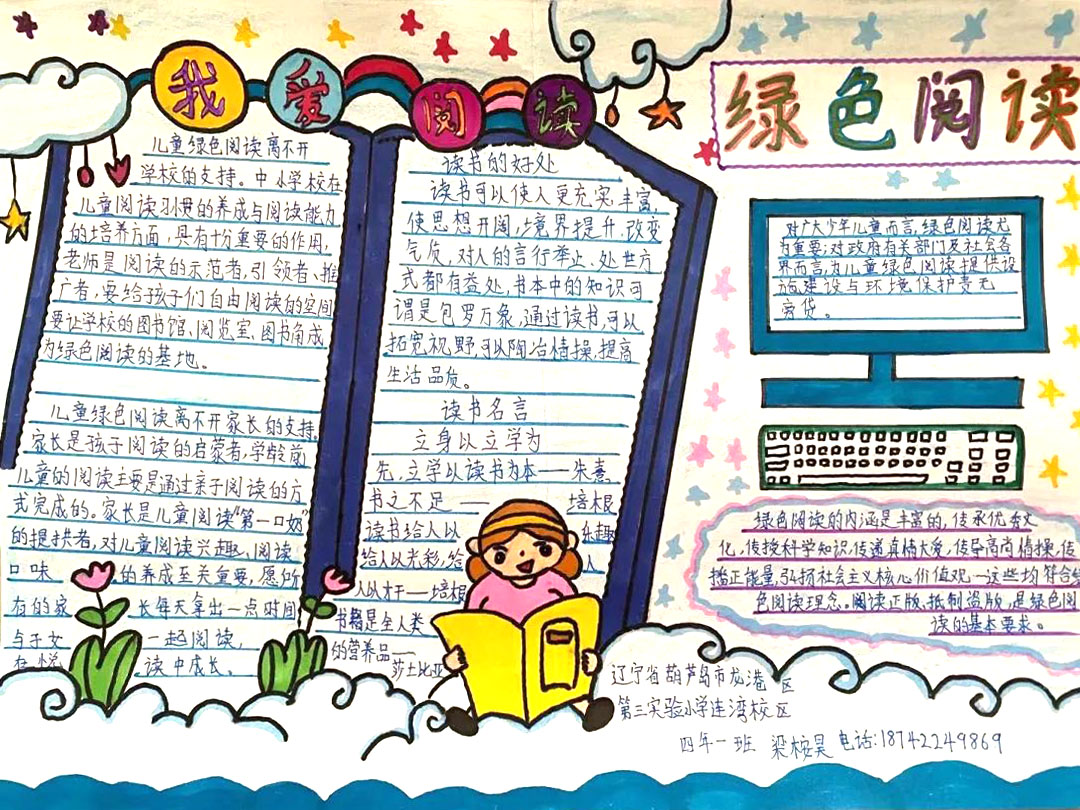 我爱阅读
儿童绿色阅读离不开
学校的支持。中小学校在
儿童阅读习惯的养成与阅读能力
的培养方面,具有十分重要的作用,
老师是阅读的示范者、引领者、推
广者,要给孩子们自由阅读的空间
要让学校的图书馆、阅览室、图书角成
为绿色阅读的基地。
儿童绿色阅读离不开家长的支持。
家长是孩子阅读的启蒙者,学龄前
儿童的阅读主要是通过亲子阅读的方
式完成的。家长是儿童阅读“第一口奶”
的提供者,对儿童阅读兴趣、阅读
口味 的养成至关重要,愿所
有的家 长每天拿出一点时间
与子女 一起阅读,
在悦 读中成长。
读书的好处
读书可以使人更充实,丰富,
使思想开阔,境界提升,改变
气质,对人的言行举止、处世方
式都有益处,书本中的知识可
谓是包罗万象,通过读书,可以
拓宽视野,可以陶冶情操,提高
生活品质。
读书名言
立身以立学为
先,立学以读书为本——朱熹
书之不足—— 培根
读书给人以 乐趣
给人以光彩,给 人
人以才干——培根
书籍是全人类
的营养品——
莎士比亚
绿色阅读
对广大少年儿童而言,绿色阅读尤
为重要;对政府有关部门及社会各
界而言,为儿童绿色阅读提供设
施建设与环境保护责无
旁贷。
绿色阅读的内涵是丰富的,传承优秀文
化,传授科学知识,传递真情大爱,传导高尚情操,传
播正能量,弘扬社会主义核心价值观,一这些均符合绿
色阅读理念。阅读正版,抵制盗版,是绿色阅
读的基本要求。
辽宁省葫芦岛市龙港区
第三实验小学连湾校区
四年一班 梁桉昊 电话:18742249869